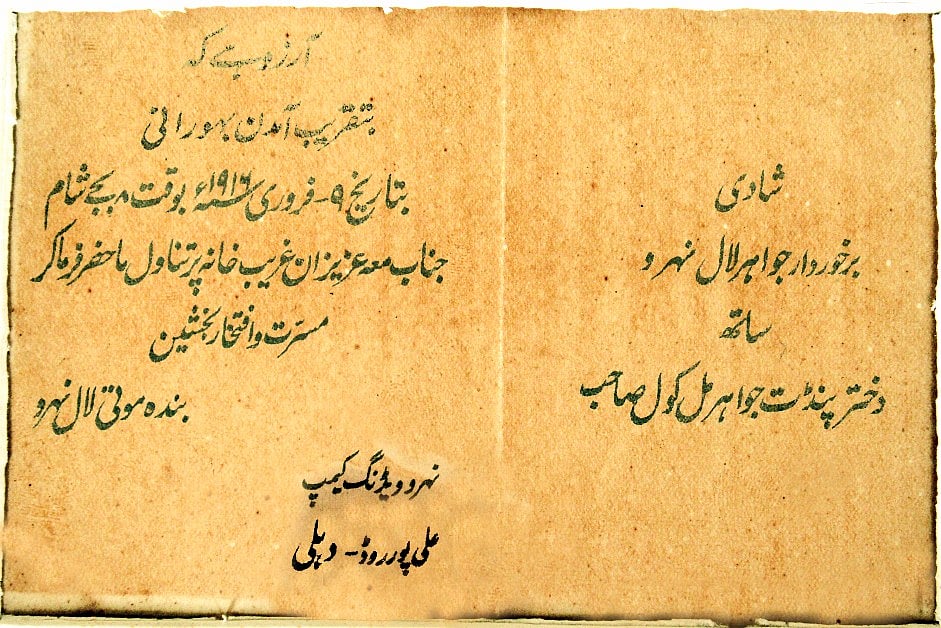 شادی
برخوردار جواہر لال نہرو
ساتھ
دختر پنڈت جواہر مل کول صاحب
آرزو ہے کہ
بتقریب آمدن بہورانی
بتاریخ ۹ - فروری سنہ ۱۹۱۶ء بوقت ۸ بجے شام
جناب معہ عزیزان غریب خانہ پر تناول ماحضر فرماکر
مسرّت و افتخار بخشین
بندہ موتی لال نہرو
نہرو ویڈنگ کیمپ
علی پور روڈ - دہلی